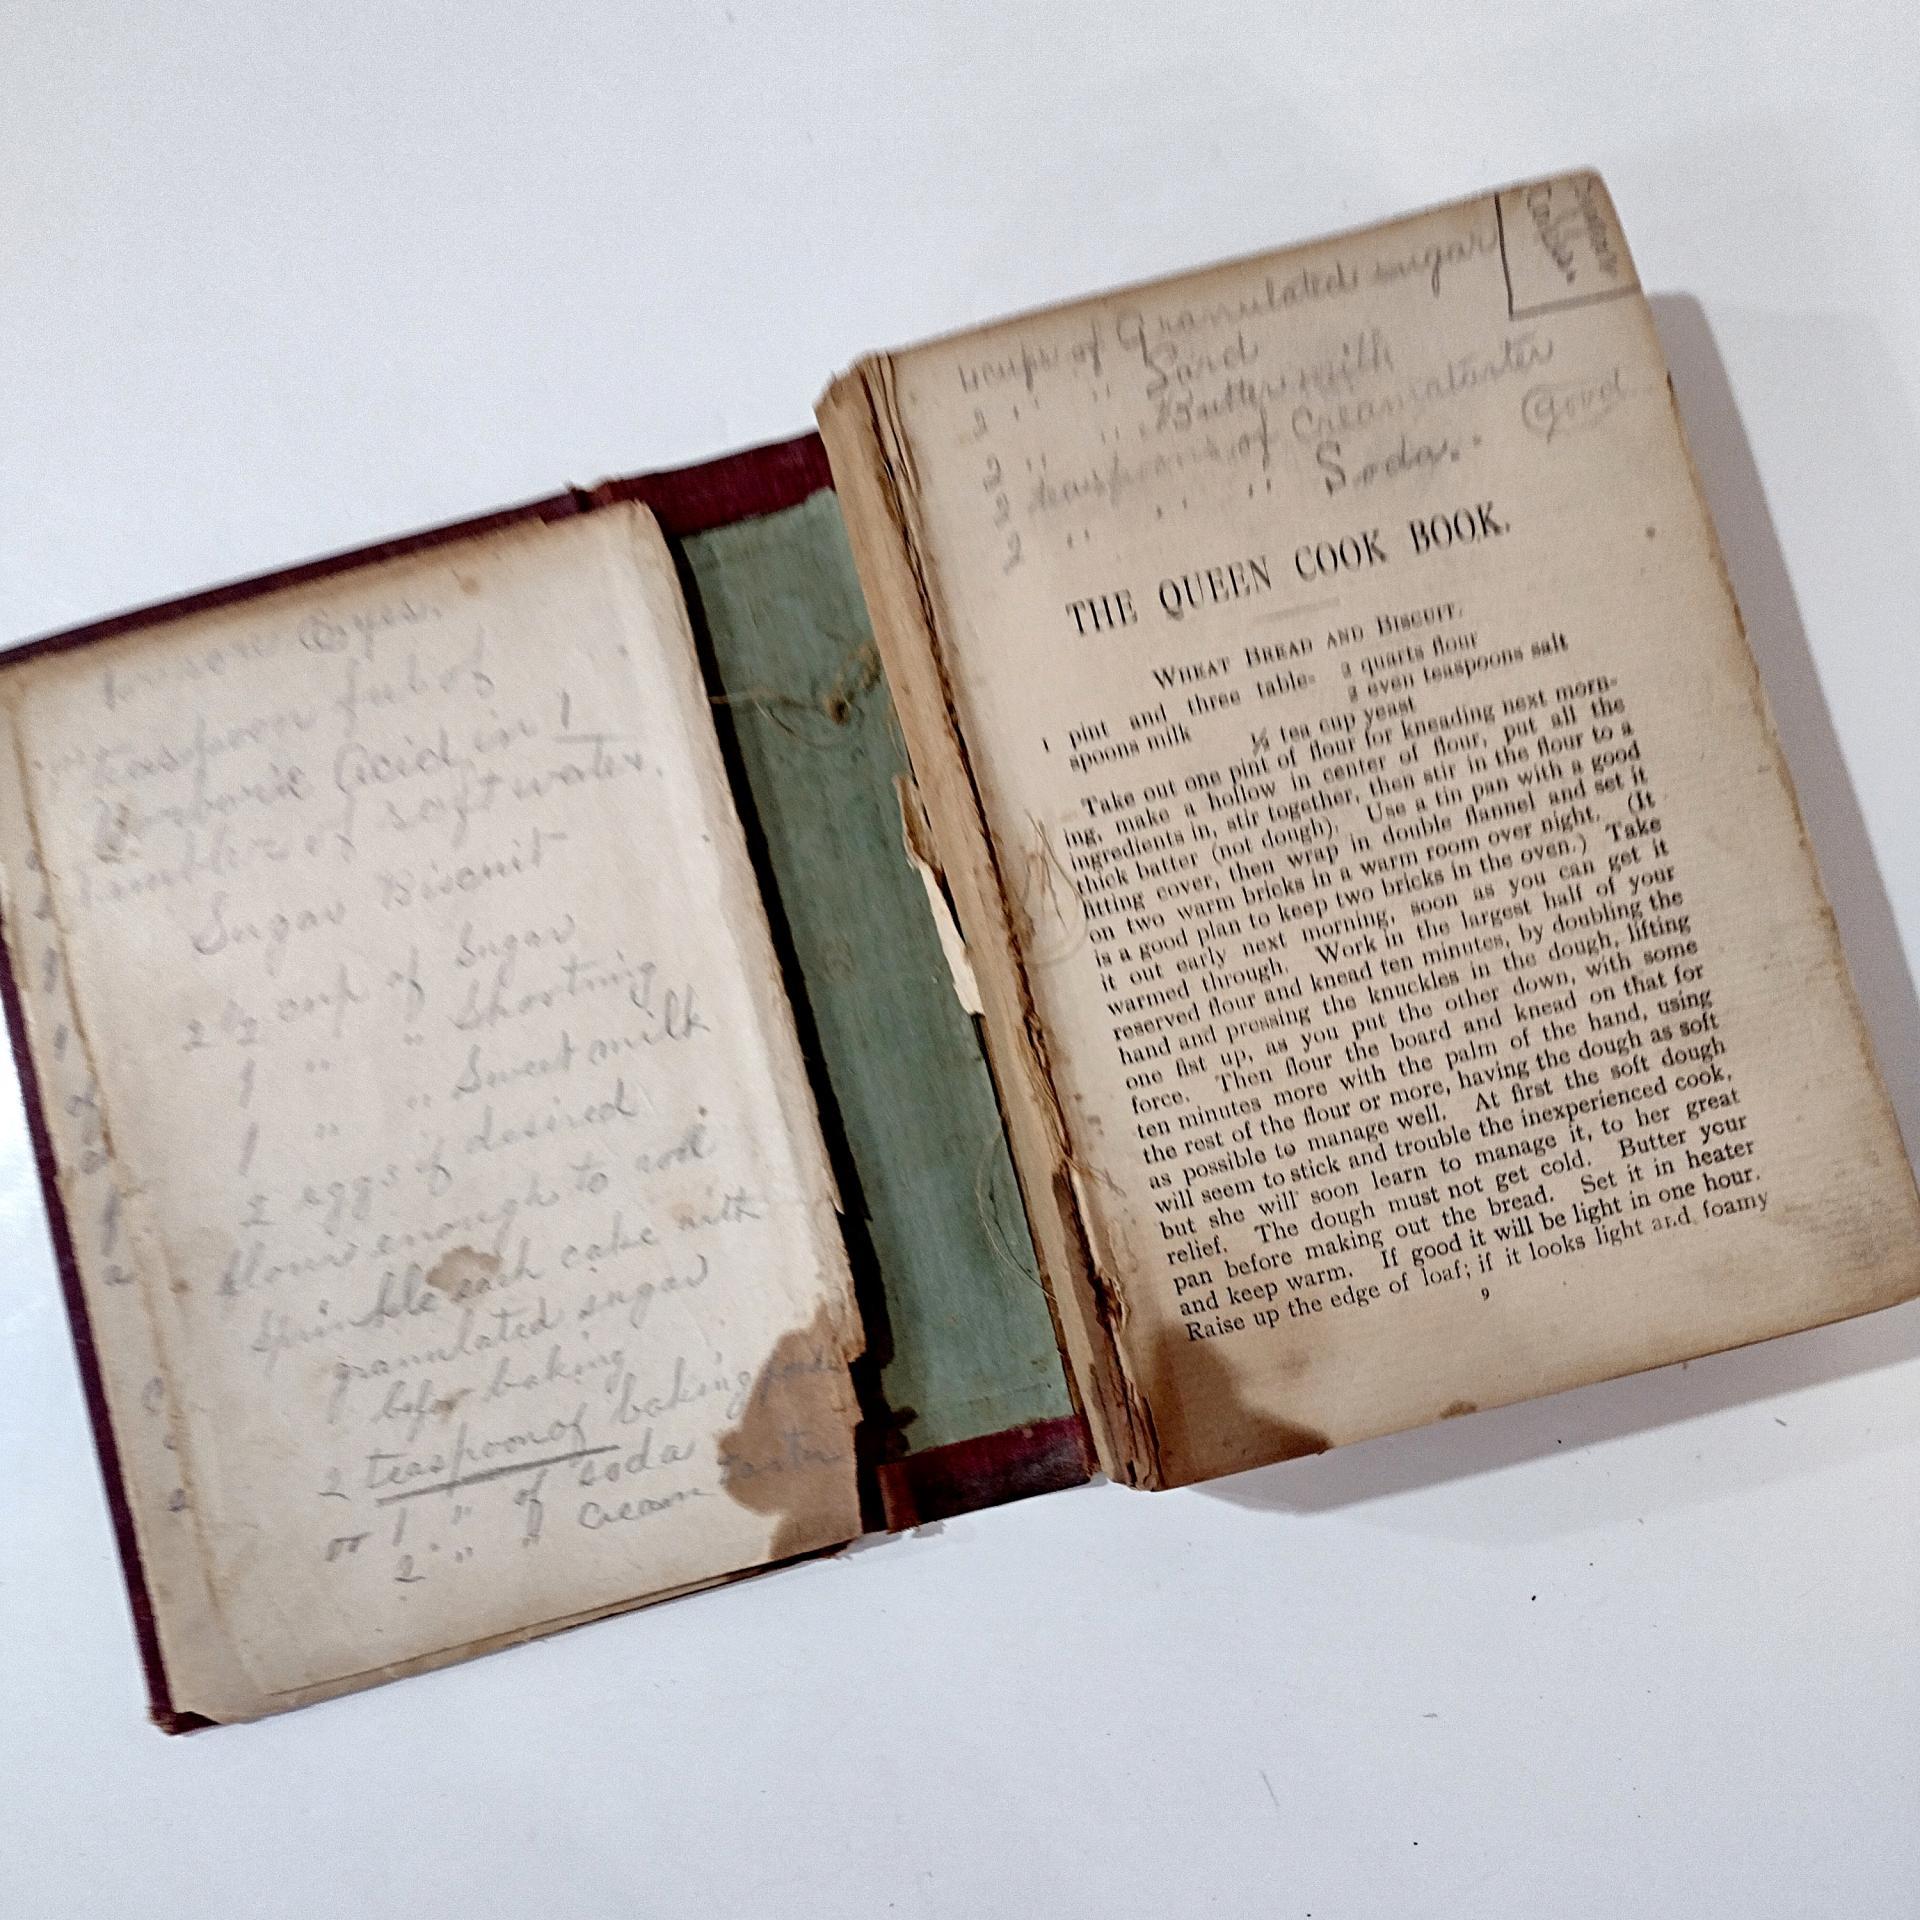 for sore Eyes.
teaspoon ful of
Acid in 1
of soft water.
Sugar Biscuit
2 1/2 cup of Sugar
1 " " Shortning
1 " " Sweet milk
2 eggs if desired
flour enough to roll
sprinkle each cake with
granulated sugar
befor baking
2 teaspoon of baking
or 1 " of soda
2 " " Cream tartar
Sugar
Cakes.
4 cups of Granulated sugar
2 " " Lard
2 " " Buttermilk
3 teaspoons of Creamatarter
2 " " " Soda.
Good
THE QUEEN COOK BOOK.
WHEAT BREAD AND BISCUIT.
1 pint and three table- 3 quarts flour
spoons milk 2 even teaspoons salt
½ tea cup yeast
Take out one pint of flour for kneading next morn-
ing, make a hollow in center of flour, put all the
ingredients in, stir together, then stir in the flour to a
thick batter (not dough). Use a tin pan with a good
fitting cover, then wrap in double flannel and set it
on two warm bricks in a warm room over night. (It
is a good plan to keep two bricks in the oven.) Take
it out early next morning, soon as you can get it
warmed through. Work in the largest half of your
reserved flour and knead ten minutes, by doubling the
hand and pressing the knuckles in the dough, lifting
one fist up, as you put the other down, with some
force. Then flour the board and knead on that for
ten minutes more with the palm of the hand, using
the rest of the flour or more, having the dough as soft
as possible to manage well. At first the soft dough
will seem to stick and trouble the inexperienced cook,
but she will soon learn to manage it, to her great
relief. The dough must not get cold. Butter your
pan before making out the bread. Set it in heater
and keep warm. If good it will be light in one hour.
Raise up the edge of loaf; if it looks light and foamy
9